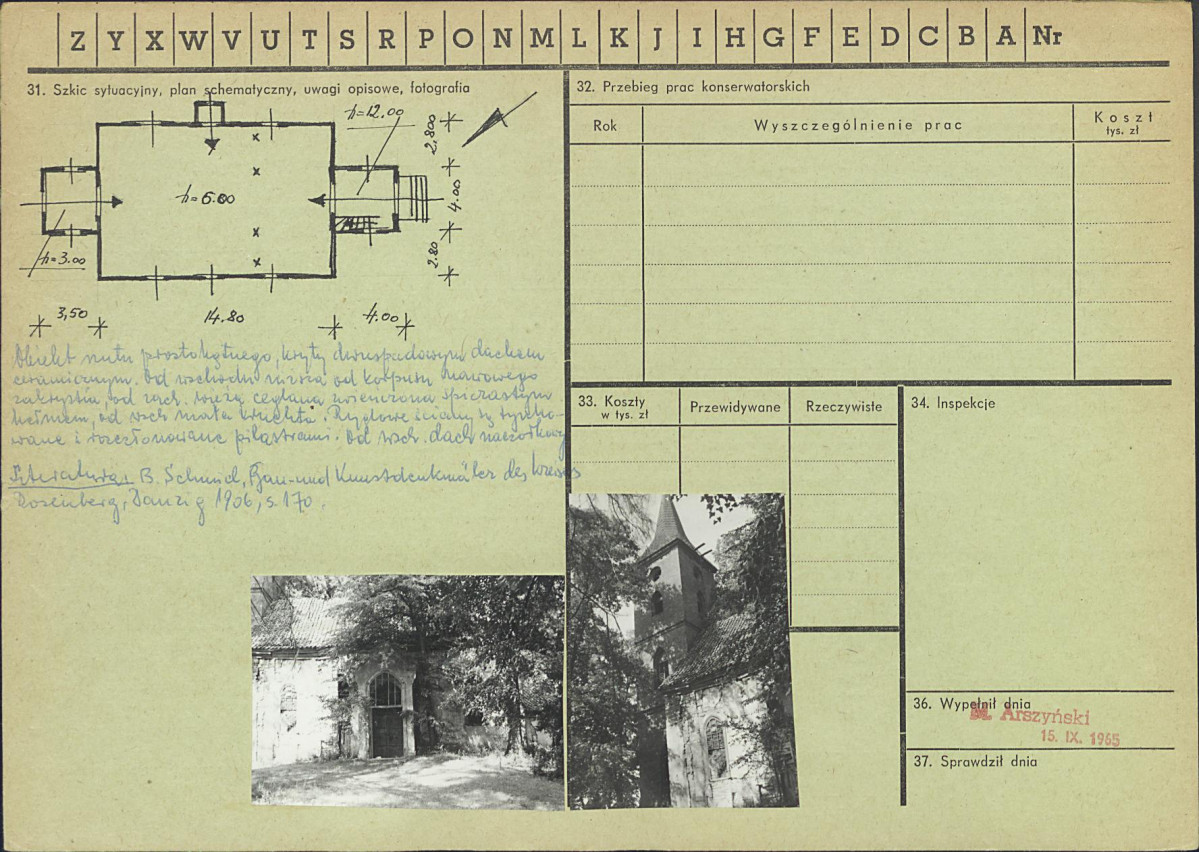 Z Y X W V U T S R P O N M L K J I H G F E D C B A Nr
31. Szkic sytuacyjny, plan schematyczny, uwagi opisowe, fotografia
h=12.00
2.800
h=6.00
4.00
h=3.00
2.80
3,50
14.80
4.00
Obiekt rzutu prostokątnego, kryty dwuspadowym dachem
ceramicznym. Od wschodu niższa od korpusu nawowego
zakrystia, od zach. wieża ceglana zwieńczona spiczastym
hełmem, od wsch. mała kruchta. Ryglowe ściany są tynko-
wane i rozczłonowane pilastrami. Od wsch. dach naczółkowy
Literatura: B. Schmid, Bau- und Kunstdenkmäler des Kreises
Rosenberg, Danzig 1906, s. 170.
32. Przebieg prac konserwatorskich
Rok
Wyszczególnienie prac
Koszt
tys. zł
33. Koszty
w tys. zł
Przewidywane
Rzeczywiste
34. Inspekcje
36. Wypełnił dnia
M. Arszyński
15. IX. 1965
37. Sprawdził dnia